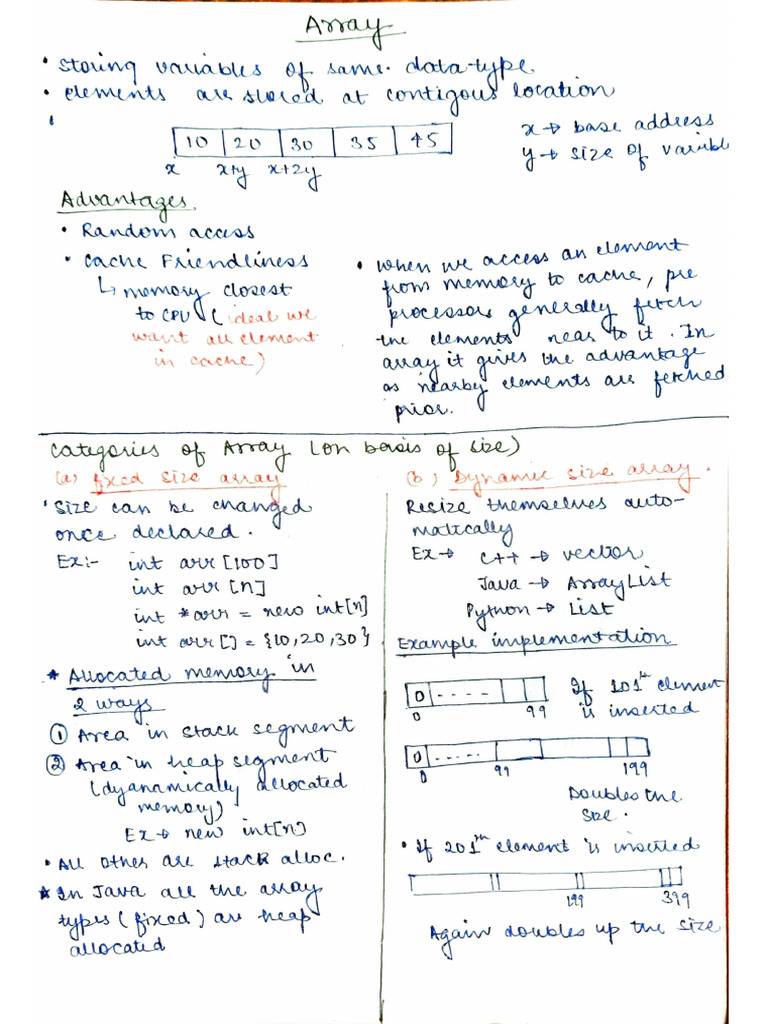 Array
• Storing variables of same data type
• elements are stored at contigous location
10 20 30 35 45
x x+y x+2y
x → base address
y → size of variabl
Advantages
• Random access
• Cache Friendliness
↳ memory closest
to CPU (ideal we
want all element
in cache)
• When we access an element
from memory to cache, pre
processors generally fetch
the elements near to it. In
array it gives the advantage
as nearby elements are fetched
prior.
Categories of Array (on basis of size)
(a) fixed size array
• Size can be changed
once declared.
Ex:- int arr [100]
int arr [n]
int *arr = new int[n]
int arr[] = {10,20,30}
* Allocated memory in
2 ways
① Area in stack segment
② Area in heap segment
(dyanamically allocated
memory)
Ex → new int[n]
• All others are stack alloc.
* In Java all the array
types (fixed) are heap
allocated
(b) Dynamic size array.
Resize themselves auto-
matically
Ex → C++ → vector
Java → ArrayList
Python → List
Example implementation
0 ----
0 99
If 101th element
is inserted
0 .....
0 99 199
Doubles the
size.
• If 201th element is inserted
199 399
Again doubles up the size